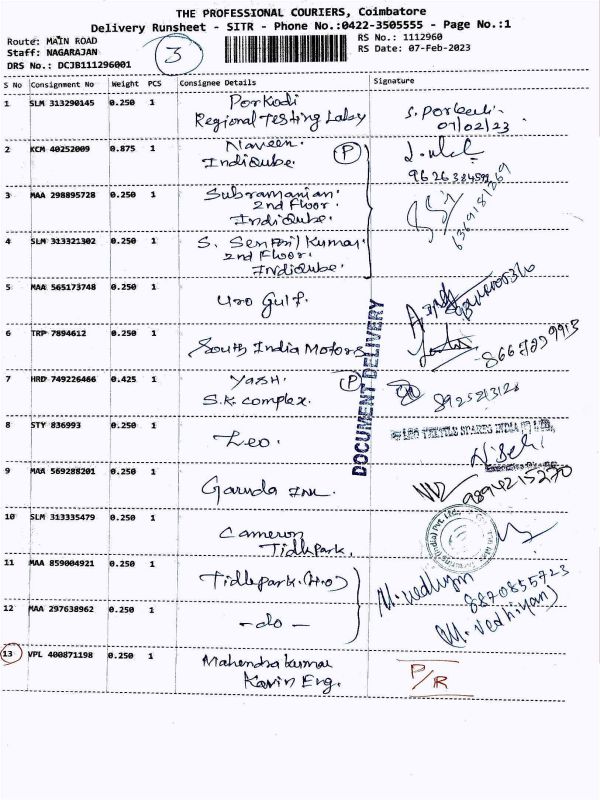 THE PROFESSIONAL COURIERS, Coimbatore
Delivery Runsheet - SITR - Phone No.:0422-3505555 - Page No.:1
Route: MAIN ROAD
Staff: NAGARAJAN
DRS No.: DCJB111296001
3
RS No.: 1112960
RS Date: 07-Feb-2023
S No Consignment No Weight PCS Consignee Details Signature
1 SLM 313290145 0.250 1 Porkodi
Regional Testing Laby
07/02/23
2 KCM 40252009 0.875 1 Naveen.
IndiQube. P
3 MAA 298895728 0.250 1 Subramanian.
2nd Floor.
IndiQube.
4 SLM 313321302 0.250 1 S. Senthil Kumar.
2nd Floor.
IndiQube.
5 MAA 565173748 0.250 1 Uro Gulf.
6 TRP 7894612 0.250 1 South India Motors
DOCUMENT DELIVERY
7 HRD 749226466 0.425 1 Yash. P
S.K. complex.
8 STY 836993 0.250 1 Leo.
LEO TEXTILE SPARES INDIA (P) LTD.,
9 MAA 569288201 0.250 1 Garuda Inn.
9894215270
10 SLM 313335479 0.250 1 Cameron
Tidlepark.
11 MAA 859004921 0.250 1 Tidlepark. (H.O)
8870855723
12 MAA 297638962 0.250 1 -do-
13 VPL 400871198 0.250 1 Mahendra kumar
Kavin Eng.
P/R